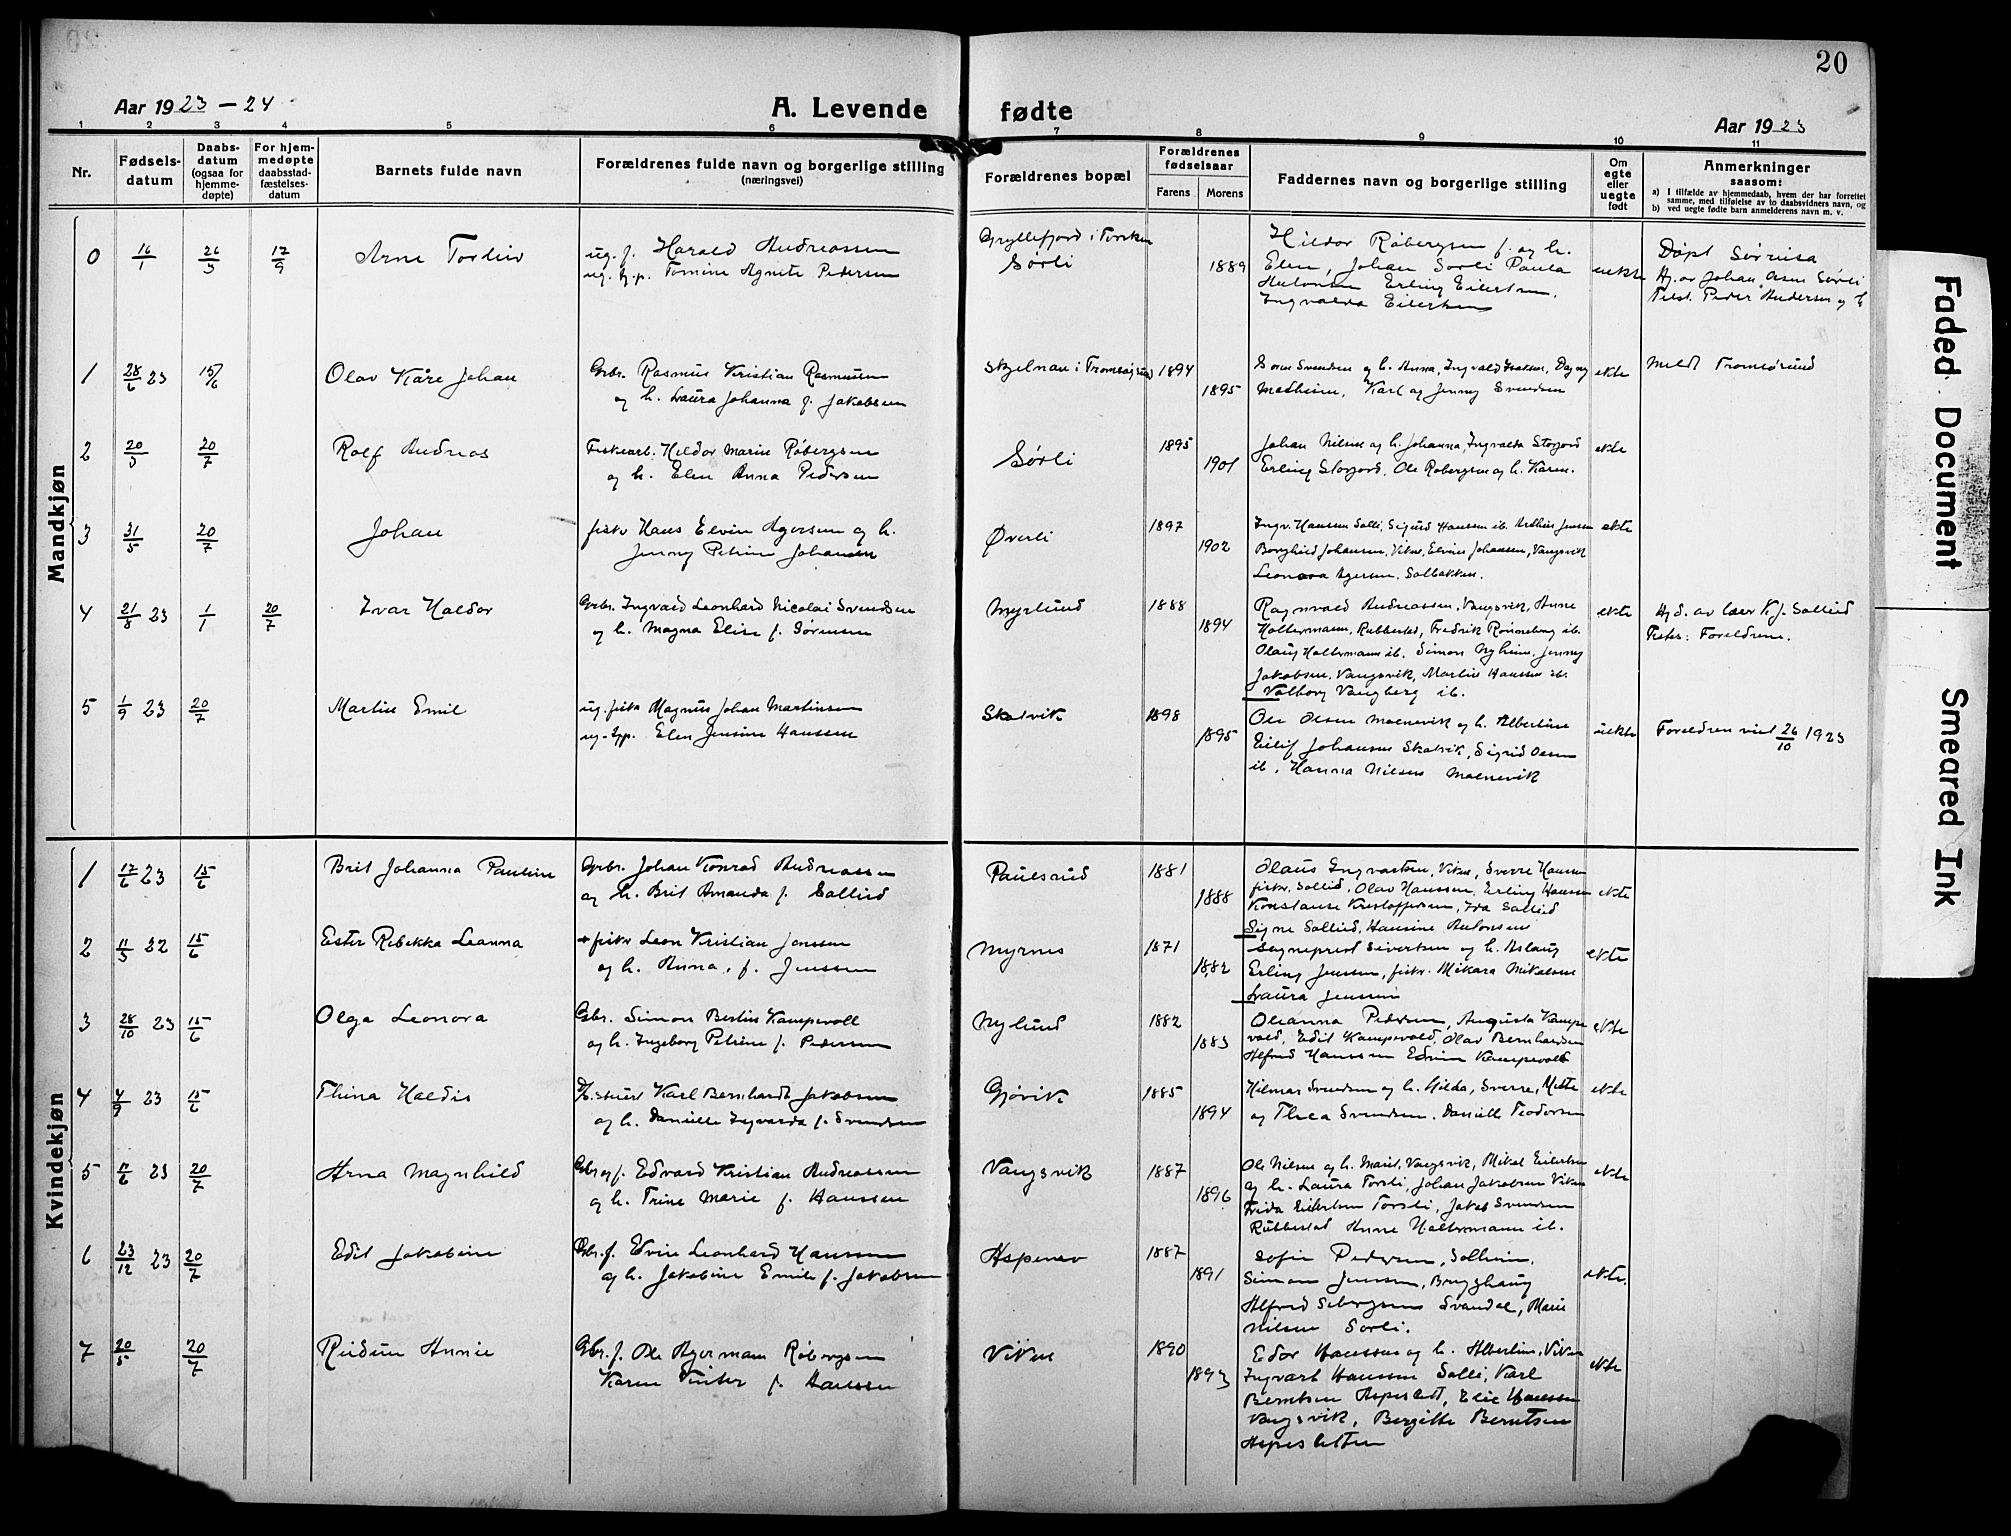 20
Aar 1923 – 24
A. Levende fødte
Aar 1923
1 2 3 4 5 6 7 8 9 10 11
Nr.
Fødsels-
datum
Daabs-
datum
(ogsaa for
hjemme-
døpte)
For hjem-
medøpte
daabsstad-
fæstelses-
datum
Barnets fulde navn
Forældrenes fulde navn og borgerlige stilling
(næringsvei)
Forældrenes bopæl
Forældrenes
fødselsaar
Farens Morens
Faddernes navn og borgerlige stilling
Om
egte
eller
uegte
født
Anmerkninger
saasom:
a) I tilfælde av hjemmedaab, hvem der har forrettet
samme, med tilføielse av to daabsvidners navn, og
b) ved uegte fødte barn anmelderens navn m. v.
Mandkjøn
0 16/1 26/3 17/9 Arne Torleiv
ug. f. Harald Andreassen
ug. Tomine Agnete Pedersen
Gryllefjord i Torsken
Sørli
1889
Hildor Røbergsen f. og h.
Elen, Johan Sørli Paula
Antonsen Erling Eilertsen,
Ingvalda Eilertsen
uekte
Døpt Sørreisa
Hj. av Johan Sørli
Test. Peder Andersen og h
1 28/6 23 15/6 Olav Kåre Johan
Gbr. Rasmus Kristian Rasmussen
og h. Laura Johanna f. Jakobsen
Skjelnan i Tromsøysund
1894
1895
Svendsen og h. Anna, Ingvald Dagny
Mathisen, Karl og Jenny Svendsen
ekte
Meldt Tromsøsund
2 20/3 20/7 Rolf Andreas
Fiskearb. Hildor Marin Røbergsen
og h. Elen Anna Pedersen
Sørli
1895
1901
Johan Nilsen og h. Johanna, Ingvalda Storjord
Erling Storjord, Ole Robergsen og h. Karen.
ekte
3 31/5 20/7 Johan
fisk. Hans Elvin Agersen og h.
Jenny Petrine Johansen
Øverli
1897
1902
Ingv. Hanssen Solli, Sigurd Hanssen ib. Arthur Jensen
Borghild Johansen, Viken, Elvine Johansen, Vangsvik
Leonora Agersen, Solbakken.
ekte
4 21/8 23 1/1 20/7 Ivar Haldor
Gbr. Ingvald Leonhard Nicolai Svendsen
og h. Magna Elise f. Sørensen
Myrlund
1888
1894
Ragnvald Andreassen, Vangsvik, Anne
Holtermann, Rubbestad, Fredrik Rønneberg ib.
Olaug Holtermann ib. Simon Nyheim, Jenny
Jakobsen, Vangsvik, Martin Hanssen ib.
Valborg Vangberg ib.
ekte
Hjd. av lær K. J. Sollied
Testes: Foreldrene.
5 1/9 23 20/7 Martin Emil
ug. fisk. Magnus Johan Martinsen
ug. Elen Jensine Hanssen
Skatvik
1898
1895
Ole Olsen Molnevik og h. Albertine
Eilif Johansen Skatvik, Sigrid Olsen
ib, Hanna Nilsen Molnevik
uekte
Foreldren viet 26/10 1923
Kvindekjøn
1 17/6 23 15/6 Brit Johanna Pauline
Gbr. Johan Konrad Andreassen
og h. Brit Amanda f. Sollied
Paulsrud
1881
1888
Olaus Ingvartsen, Viken, Sverre Hanssen
fiskr. Sollied, Olav Hanssen, Erling Hanssen
Konstanse Kristoffersen, Ida Sollied
Signe Sollied, Hansine Antonsen
ekte
2 11/5 22 15/6 Ester Rebekka Leanna
fiskr Leon Kristian Jenssen
og h. Anna, f. Jenssen
Myrnes
1871
1882
Sogneprest Sivertsen og h. Aslaug
Erling Jenssen, fiskr. Mikara Mikalsen
Laura Jenssen
ekte
3 28/10 23 15/6 Olga Leonora
Gbr. Simon Bertin Kampevoll
og h. Ingeborg Petrine f. Pedersen
Nylund
1882
1883
Oleanna Pedersen, Augusta Kampe
vold, Edit Kampevold, Olav Bernhardsen
Alfred Hanssen Edvin Kampevold
ekte
4 4/9 23 15/6 Thina Haldis
D/S stuert Karl Bernhardt Jakobsen
og h. Danielle Ingvarda f. Svendsen
Gjøvik
1885
1894
Hilmar Svendsen og h. Hilda, Sverre, Mette
og Thea Svendsen, Daniell Teodorsen
ekte
5 11/6 23 20/7 Arna Magnhild
Gbr og f. Edvard Kristian Andreassen
og h. Trine Marie f. Hanssen
Vangsvik
1887
1896
Ole Nilsen og h. Marit, Vangsvik, Mikal Eilertsen
og h. Laura Torsli, Johan Jakobsen Viken
Frida Eilertsen Torsli, Jakob Svendsen
Rubbestad Anne Holtermann ib.
ekte
6 23/12 23 20/7 Edit Jakobine
Gbr. f. Edvin Leonhard Hanssen
og h. Jakobine Emilie f. Jakobsen
Aspenes
1887
1891
Sofie Pedersen, Solheim.
Simon Jenssen, Brygghaug
Alfred Sebergsen Svandal, Marie
Nilsen Sørli.
ekte.
7 20/5 20/7 Reidun Annie
Gbr. f. Ole Agermann Røbergsen
Karen f. Hanssen
Viken
1890
1893
Edor Hanssen og h. Albertine, Viken
Ingvart Hanssen Solli, Karl
Berntsen Aspeslett, Elie Hanssen
Vangsvik, Bergitte Berntsen
Aspesletten
ekte
Faded Document
Smeared Ink